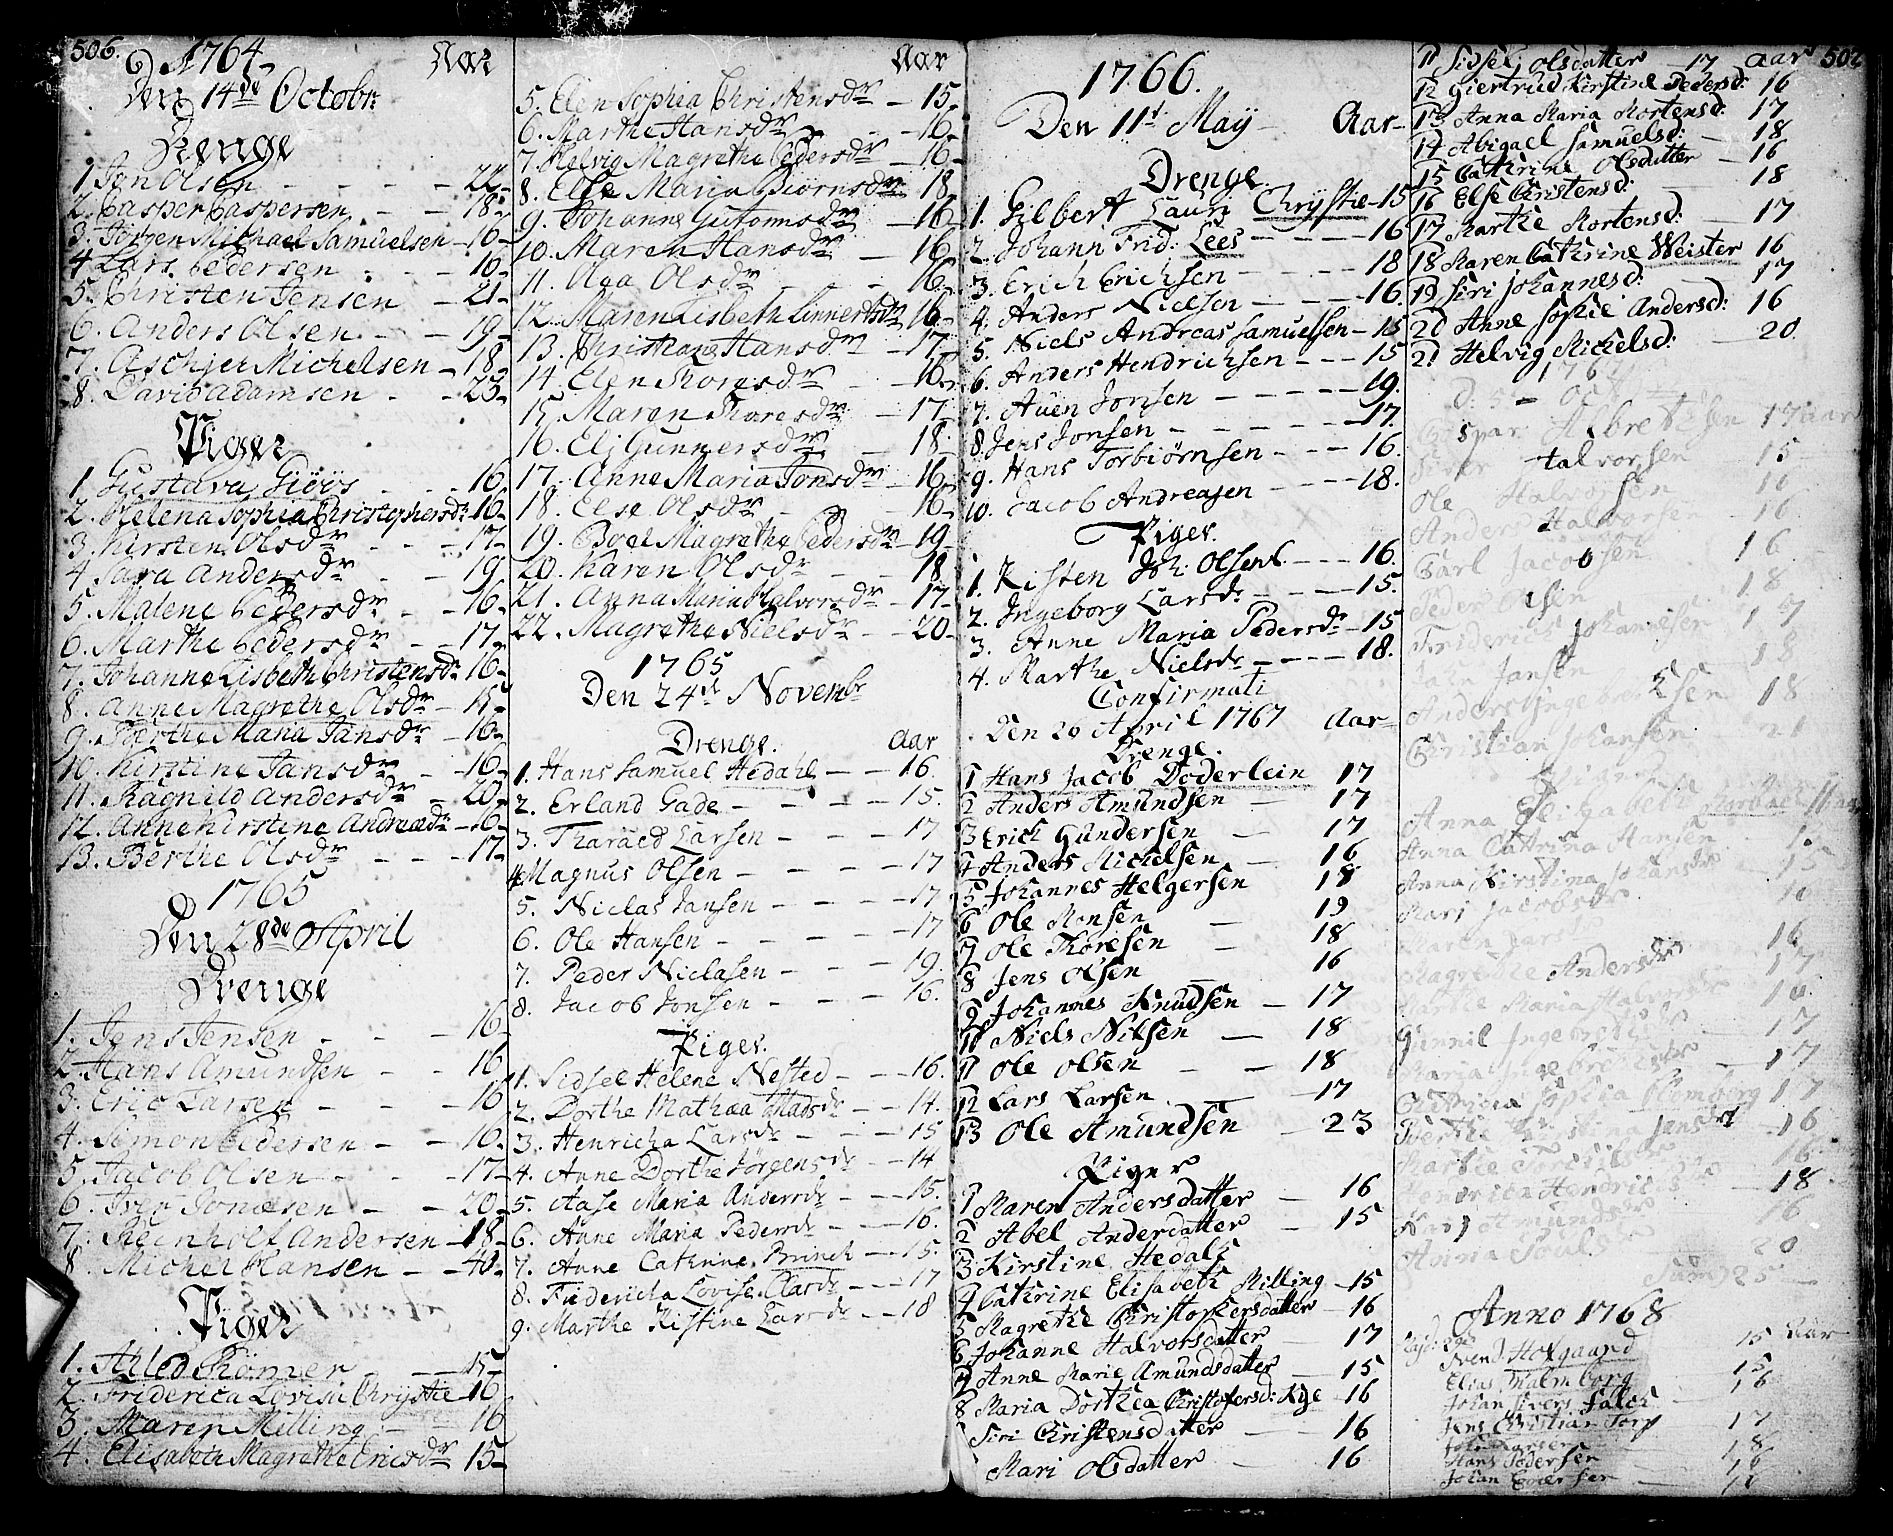 506.
1764 Aar
Den 14de Octobr
Drenge
1. Jon Olsen - - - - 22-
2. Casper Caspersen - - 18-
3. Jörgen Michael Samuelsen - 16-
4 Lars Pedersen - - - 16-
5. Christen Jensen - 21-
6. Anders Olsen - - 19-
7. Aschjer Michelsen - 18-
8. David Adamsen - - 23-
Piger
1 Gustava - - 16.
2. Helena Sophia Christophersdr 16-
3. Kirsten Olsdr - - - 17-
4 Sara Andersdr - - 19
5. Malene Pedersdr - - 16-
6. Marthe Pedersdr - - 17-
7. Johanne Lisbeth Christensdr 16-
8. Anne Magrethe Olsdr - 15-
9. Berthe Maria Jansdr - 16-
10. Kirstine Jansdr - - 16-
11. Ragnild Andersdr - 20-
12. Anne Kirstine Andreædr - 16-
13. Berthe Olsdr - - - 17-
1765
Den 28de April
Drenge
1. Jens Jensen - - - 16-
2. Hans Amundsen - - 16
3. Eric Larsen - - - 16
4. Simon Pedersen - - 16.
5. Jacob Olsen - - - 17-
6. Iver Jonæsen - - 20-
7. Reinholt Andersen - 18-
8. Michel Hansen - - 40-
Piger
1. Ahled Römer - - 15-
2. Friderica Lovisa Chrystie 16
3. Maren Milling - 16
4. Elisabeth Magrethe Ericsdr 15-
Aar
5. Elen Sophia Christensdr - 15-
6. Marthe Hansdr - - 16-
7. Helvig Magrethe Pedersdr - 16-
8. Else Maria Biörnsdr - 18-
9. Johanne Gutormsdr - 16-
10. Maren Hansdr - 16-
11. Aga Olsdr - - 16-
12. Maren Lisbeth Linnertsdr 16-
13. Christiane Hansdr - 17-
14. Elen Thoresdr - 16-
15. Maren Thoresdr - 17-
16. Eli Gunnersdr - 18-
17. Anne Maria Jonsdr - 16-
18. Else Olsdr - - 16-
19. Boel Magrethe Pedersdr - 19-
20. Karen Olsdr - - - 18
21. Anna Maria Halvorsdr - 17-
22. Magrethe Nielsdr - - 20-
1765
Den 24de Novembr
Drenge. Aar
1. Hans Samuel Hedahl - - 16.
2. Erland Gade - - - - 15.
3. Tharaed Larsen - - - 17
4 Magnus Olsen - - - - 17
5. Niclas Jansen - - - - 17
6. Ole Hansen - - - - 17
7. Peder Niclasen - - - 19.
8. Jacob Jonsen - - - 16.
Piger.
1. Sidsel Helene Nested - - - 16.
2. Dorthe Mathæa Madsdr - 14.
3. Henricha Larsdr - - - 15
4. Anne Dorthe Jörgensdr - - 14
5. Aase Maria Andersdr - - - 15.
6. Anne Maria Pedersdr - - - 16.
7. Anne Cathrine Brinch - - 15.
8. Fridericha Lovise Clasdr - - 17
9. Marthe Kistine Larsdr - - 18
1766.
Den 11te May Aar-
Drenge
1. Gilbert Lauri Chrystie - 15
2. Johann Frid: Lees - - - - 16
3. Erich Erichsen - - - - 18
4. Anders Nielsen - - - - 16.
5. Niels Andreas Samuelsen - 15
6. Anders Hendrichsen - - - 15
7. Auen Jonsen - - - - - 19.
8. Jens Jonsen - - - - - 17.
9. Hans Torbiörnsen - - - 16.
10. Jacob Andreasen - - - - 18.
Piger.
1. Kisten Joh: Olsen - - - 16.
2. Ingeborg Larsdr - - - - 15.
3. Anne Maria Pedersdr - 15
4. Marthe Nielsdr - - - - 18.
Confirmati
Den 26 April 1767 Aar-
Drenge.
1 Hans Jacob Döderlein 17
2 Anders Amundsen - 17
3 Erich Gundersen - 17
4 Anders Michelsen - 16
5 Johannes Helgersen 18
6 Ole Monsen - 19
7 Ole Thoresen - 18
8 Jens Olsen 16
9 Johannes Knudsen - 17
10 Niels Nilsen - 18
11 Ole Olsen - - 18
12 Lars Larsen - 17
13 Ole Amundsen - 23
Piger
1 Maren Andersdatter - 16
2 Abel Andersdatter - 15
3 Kirstine Hedals
4 Cathrine Elisabeth Milling - 15
5 Magrethe Christophersdatter - 16
6 Johanne Halvorsdatter - 17
7 Anne Marie Amundsdatter - 15
8 Maria Dorthea Christofersd: Kyge 16
Siri Christensdatter - 16
Mari Olsdatter - 16
507
11 Sidsel Olsdatter - 17 Aar
12 Giertrud Kirstine Pedersd: 16
13 Anna Maria Mortensd: 17
14 Abigael Samuelsd: - 18
15 Cathrine Olsdatter - 16
16 Else Christensd: 18
17 Marthe Mortensd: - 17
18 Maren Cathrine Weister 16
19 Siri Johannesd: 17
20 Anne Sophie Andersd: 16
21 Helvig Mickelsd: - 20.
1767
D: 5 Oct
Caspar Albretsen 17 aar
Siver Halvorsen 15
Ole Halvorsen 16
Anders Halvorsen 16
Carl Jacobsen 16
Peder Olsen 18
Friderich Johannesen 17
Jansen 18
Anders 18
Christian Hansen 21
Anna Elisabeth
Anna Catrina Hansen
Anna Kirstina Johansdr 15
Mari Jacobsdr 16
Maren
Magrethe Andersdr 17
Marthe Maria Halvorsdr 16
Gunnil 17
Maria 17
Catrina Sophia Malmborg 17
Berthe Kirstina Jensdr 16
Marthe 16
18
Kari Amundsdr 16
Anna 20
Anno 1768
15 Aar
Svend Holgaard
Elias Malmborg 15
Johan Sivers Falch 16
Jens Christian Torp 17
Larsen 18
Hans Pedersen 16
Johan 16